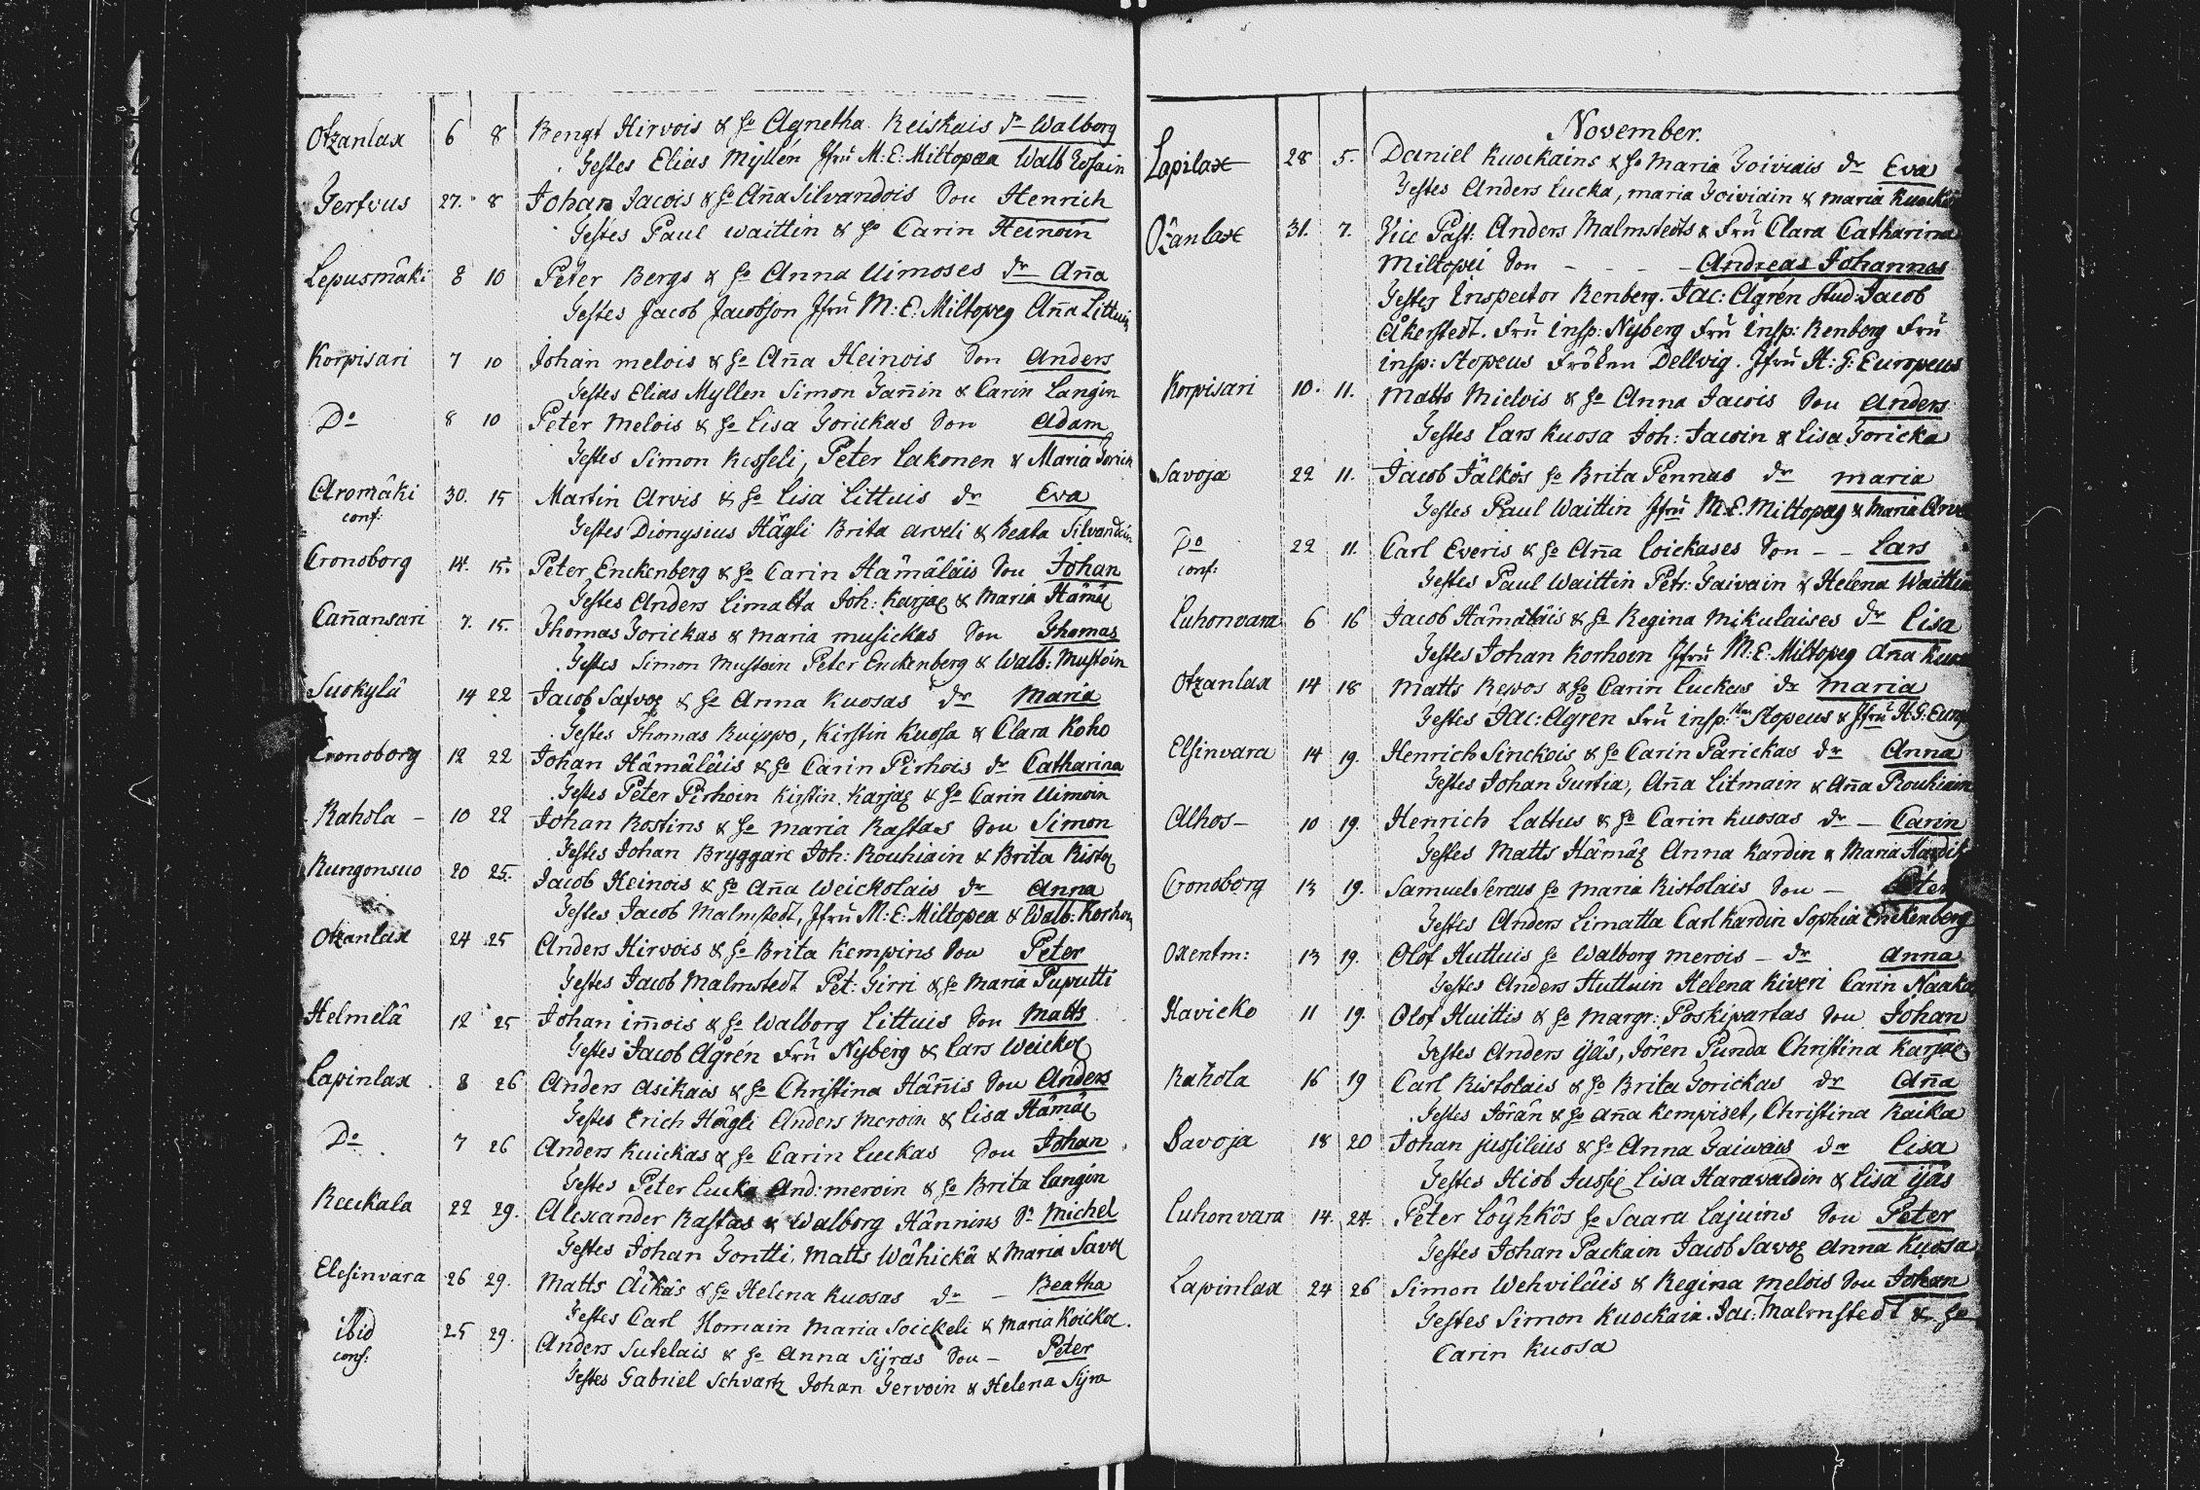 Otzanlax 6 8 Bengt Hirvois & ho Agnetha Reiskais dr Walborg
Testes Elias Myllén Jfru M: E: Miltopæa Walb
Jerfvus 27. 8 Johan Jacois & ho Aña Silvandois Son Henrich
Testes Paul Waittin & ho Carin Heinoin
Lepusmäki 8 10 Peter Bergs & ho Anna Uimoses dr Aña
Testes Jacob Jacobson Jfru M: E: Miltopæa Aña Littuin
Korpisari 7 10 Johan melois & ho Aña Heinois Son Anders
Testes Elias Myllen Simon Jañin & Carin Langin
Do 8 10 Peter Melois & ho Lisa Jorickas Son Adam
Testes Simon Kisseli, Peter Lakonen & Maria Jorick
Aromäki 30. 15 Martin Arvis & ho Lisa Littuis dr Eva
conf:
Testes Dionysius Hägli Brita Arveli & Beata Silvandin
Cronoborg 14. 15. Peter Enckenberg & ho Carin Hämäläis Son Johan
Testes Anders Limatta Joh: Karjaː & Maria Hämäː
Cañansari 7. 15. Thomas Jorickas & maria musickas Son Thomas
Testes Simon Mustoin Peter Enckenberg & Walb: Mustoin
Suokylä 14 22 Jacob Safvoː & ho Anna Kuosas dr Maria
Testes Thomas Kuippo, Kirstin Kuosa & Clara Koho
Cronoborg 12 22 Johan Hämäläis & ho Carin Pirhois dr Catharina
Testes Peter Pirhoin Kirstin Karjaː & ho Carin Uimoin
Rahola – 10 22 Johan Rostins & ho maria Rastas Son Simon
Testes Johan Bryggare Joh: Rouhiain & Brita Ristoː
Rungonsuo 20 25. Jacob Heinois & ho Aña Weickolais dr Anna
Testes Jacob Malmstedt, Jfru M: E: Miltopea & Walb: Korhon
Otzanlax 24 25 Anders Hirvois & ho Brita Kempins Son Peter
Testes Jacob Malmstedt Pet: Girri & ho Maria Puputti
Helmilä 12 25 Johan im̃ois & ho Walborg Littuis Son Matts
Testes Jacob Ågrén Fru Nyberg & Lars Weickoː
Lapinlax 8 26 Anders Asikais & ho Christina Häñis Son Anders
Testes Erich Hägli Anders Meroin & Lisa Hämäː
Do 7 26 Anders Kuickas & ho Carin Luckas Son Johan
Testes Peter Lucka And: meroin & ho Brita Langin
Reeckala 22 29. Alexander Rastas & Walborg Hännins Sn Michel
Testes Johan Jontti, Matts Wähickä & Maria Savoː
Elesinvara 26 29. Matts Äikäs & ho Helena Kuosas dr – Beatha
Testes Carl Homain Maria Soickeli & Maria Koickoː.
ibid 25 29. Anders Sutelais & ho Anna Syras Son – Peter
conf:
Testes Gabriel Schvartz Johan Jervoin & Helena Syra
November.
Lapilax 28 5. Daniel Kuockains & ho Maria Joiviais dr Eva
Testes Anders Lucka, maria Joiviain & maria Kuockai
Otzanlax 31. 7. Vice Past: Anders Malmstedts & Fru Clara Catharina
Miltopæi Son – – – – Andreas Johannes
Testes Inspector Renberg. Jac: Ågrén Stud: Jacob
Åkerstedt. Fru insp: Nyberg Fru insp: Renberg Fru
insp: Stopeus Fröken Dellvig. Jfru H: G: Europeus
Korpisari 10. 11. Matts Mielois & ho Anna Jacois Son Anders
Testes Lars Kuosa Joh: Jacoin & Lisa Joricka
Savoja 22 11. Jacob Jälkös ho Brita Pennas dr maria
Testes Paul Waittin Jfru M: E: Miltopæa & Maria Arve
Do 22 11. Carl Everis & ho Aña Loickases Son – – Lars
conf:
Testes Paul Waittin Petr: Gaivain & Helena Waittin
Luhonvara 6 16 Jacob Hämäläis & ho Regina Mikulaises dr Lisa
Testes Johan Korhoin Jfru M: E: Miltopæa Aña Kuos
Otzanlax 14 18 Matts Rewos & ho Carin Luckas dr maria
Testes Jac: Agren Fru insp: Stopeus & Jfru H: G: Europ
Elsinvara 14 19. Henrich Sinckois & ho Carin Parickas dr Anna
Testes Johan Gurtia, Aña Litmain & Aña Rouhiain
Alhos – 10 19. Henrich Lattus & ho Carin Kuosas dr – Carin
Testes Matts Hämäː Anna Kardin & Maria
Cronoborg 13 19. Samuel Sercus ho maria Ristolais Son – Peter
Testes Anders Limatta Carl Kardin Sophia Enckenberg
Oxentm: 13 19. Olof Huttuis ho Walborg merois – dr Anna
Testes Anders Huttuin Helena Kiveri Carin Naaka
Havicko 11 19. Olof Huittis & ho Margr: Poskipartas Son Johan
Testes Anders Ijäs, Jören Punda Christina Karjaː
Rahola 16 19 Carl Ristolais & ho Brita Jorickas dr Aña
Testes Jörän & ho aña Kempiset, Christina Raika
Savoja 18 20 Johan jussileus & ho Anna Gaiwais dr Lisa
Testes Hiob Jussiː Lisa Harawaldin & Lisa Ijäs
Luhonvara 14. 24. Peter Löyhkös ho Saara Lajuins Son Peter
Testes Johan Packain Jacob Savoː Anna Kuosa
Lapinlax 24 26 Simon Wehviläis & Regina Melois Son Johan
Testes Simon Kuockain. Jac: Malmstedt & ho
Carin Kuosa